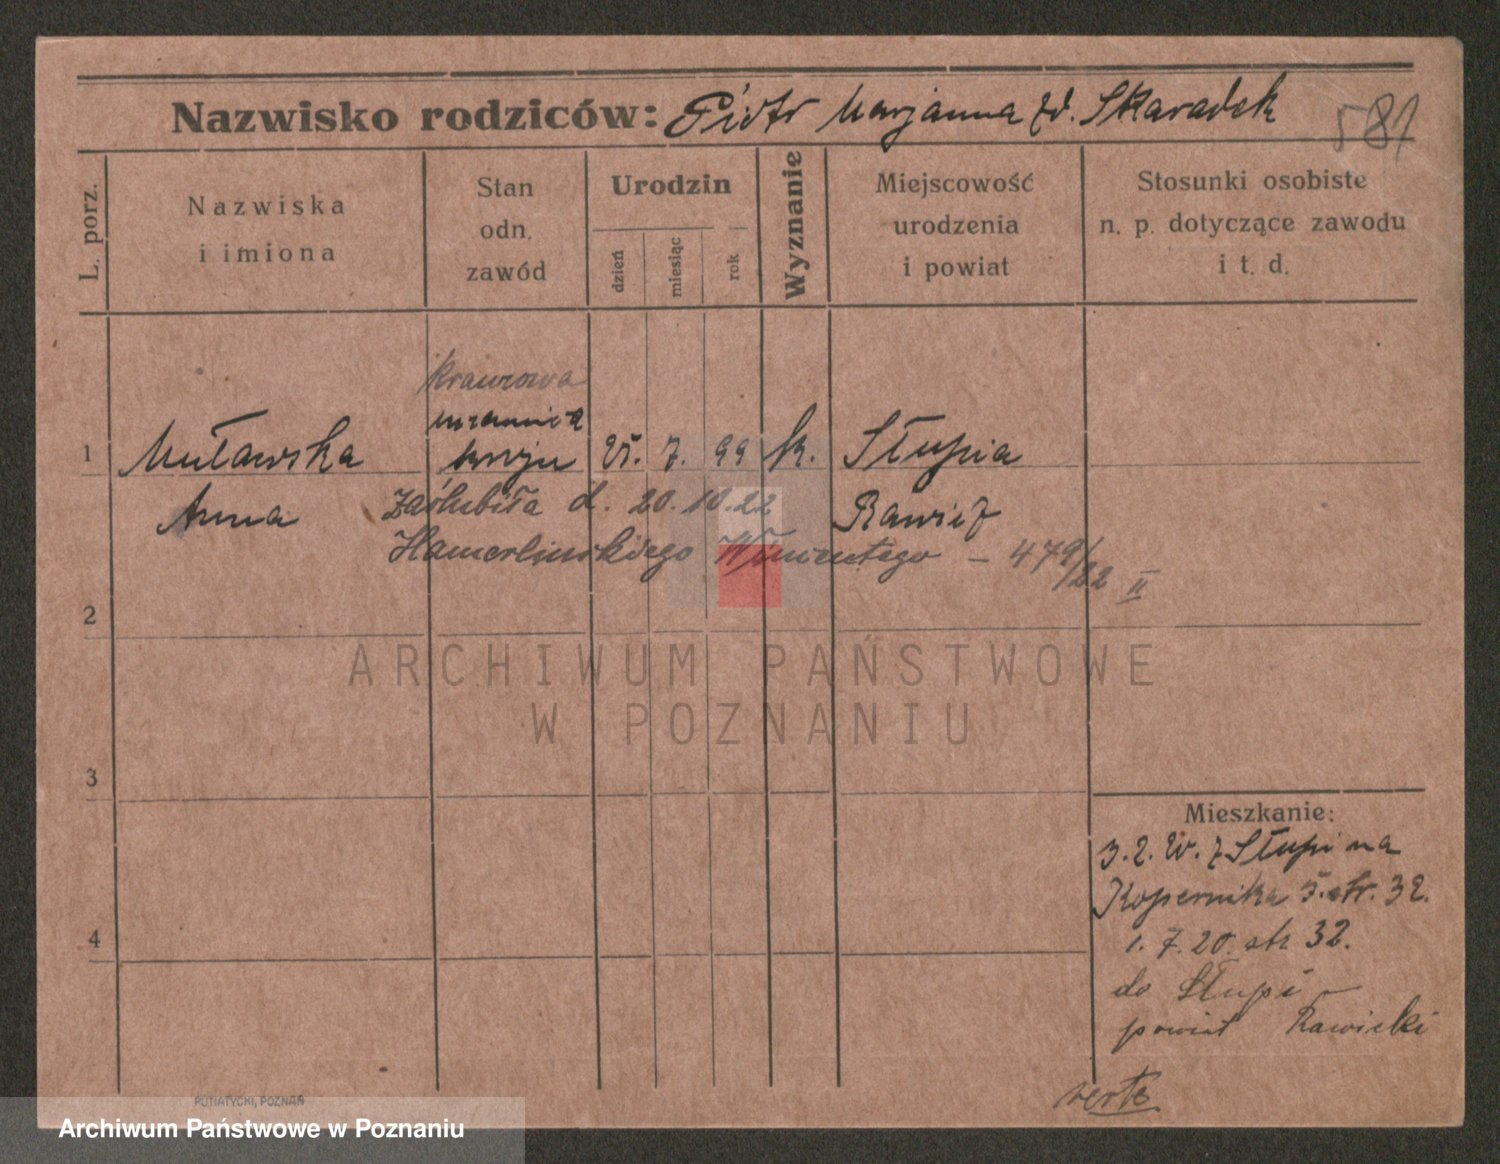 Nazwisko rodziców: Piotr Marjanna zd. Skaradek
581
L. porz.
Nazwiska
i imiona
Stan
odn.
zawód
Urodzin
dzień
miesiąc
rok
Wyznanie
Miejscowość
urodzenia
i powiat
Stosunki osobiste
n. p. dotyczące zawodu
i t. d.
Krawcowa
1 Muławska 7. 99 k. Słupia
Anna zaślubiła d. 20.10.22 Rawicz
Hamerlińskiego Wincentego – 479/22 II
2
3
4
Mieszkanie:
3.2. z Słupi na
Kopernika 5. str. 32.
1. 7. 20. str 32.
do Słupi
powiat Rawicki
verte
PUTIATYCKI, POZNAŃ
ARCHIWUM PAŃSTWOWE
W POZNANIU
Archiwum Państwowe w Poznaniu